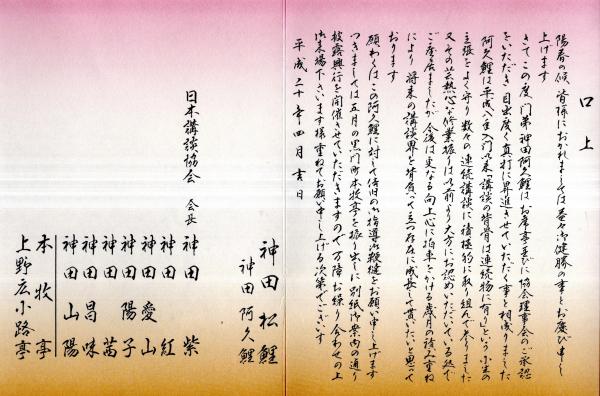 口上
陽春の候、皆様におかれましては益々御健勝の事とお慶び申し
上げます
さて この度 門弟 神田阿久鯉は、お席亭並びに協会理事会のご承認
をいただき 目出度く真打に昇進させていただく事と相成りました
阿久鯉は平成八年入門以来「講談の背骨は連続物に有り」という小生の
主張をよく守り 数々の連続講談に積極的に取り組んで参りました
又その芸熱心な修業振りは以前より大方にお認めいただいている処で
ございましたが 今後は更なる向上心に拍車をかける歳月の積み重ね
により 将来の講談界を背負って立つ存在に成長して貰いたいと思って
おります
願わくはこの阿久鯉に対して倍旧の御指導御鞭撻をお願い申し上げます
つきましては五月の黒門町本牧亭を振り出しに別紙御案内の通り
披露興行を開催させていただきますので 万障お繰り合わせの上
御来場下さいます様 重ねてお願い申し上げる次第でございます
平成二十年四月吉日
神田松鯉
神田阿久鯉
日本講談協会 会長 神田紫
神田紅
神田愛山
神田陽子
神田茜
神田昌味
神田山陽
本牧亭
上野広小路亭